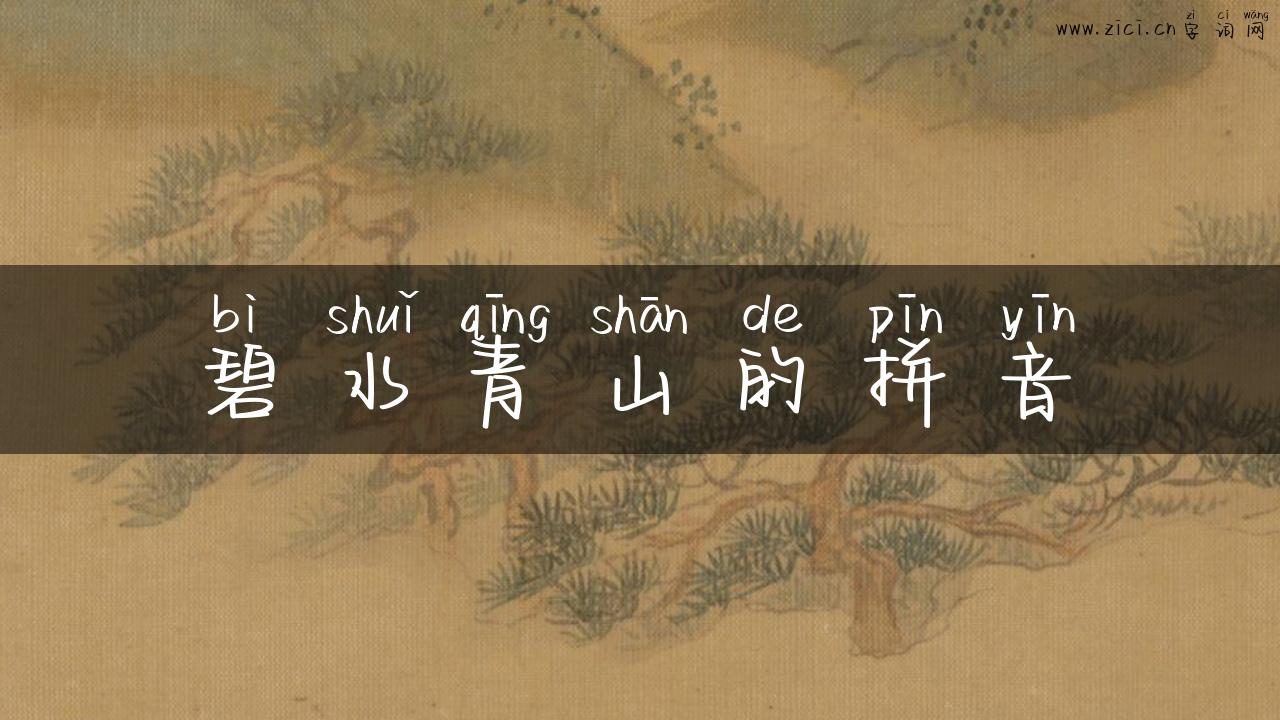 zì cí wǎng
www.zici.cn 字词网
bì shuǐ qīng shān de pīn yīn
碧水青山的拼音